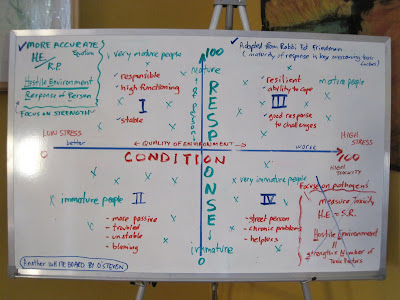 ✓ MORE ACCURATE
Equation
H.E
R.P.
Hostile Environment
Response of Person
FOCUS ON STRENGTH
very mature people
✓ responsible
✓ high functioning
I
✓ stable
100
mature
RESPONSE
✓ Adapted from Rabbi Ed Friedman
(maturity of response is key
✓ resilient
✓ ability to cope
mature people
III
✓ good response
to challenges
LOW STRESS
better
← QUALITY OF ENVIRONMENT →
worse
HIGH
STRESS
CONDITION
100
HIGH
TOXICITY
immature people
II
- more passive
- troubled
- unstable
- blaming
very immature people
IV
- street person
- chronic problems
- helpless
immature
0
Focus on pathogens
measure Toxicity
H.E = S.R.
Hostile Environment
=
strength + Number of
Toxic Factors
Another WHITE BOARD BY D'STEVEN